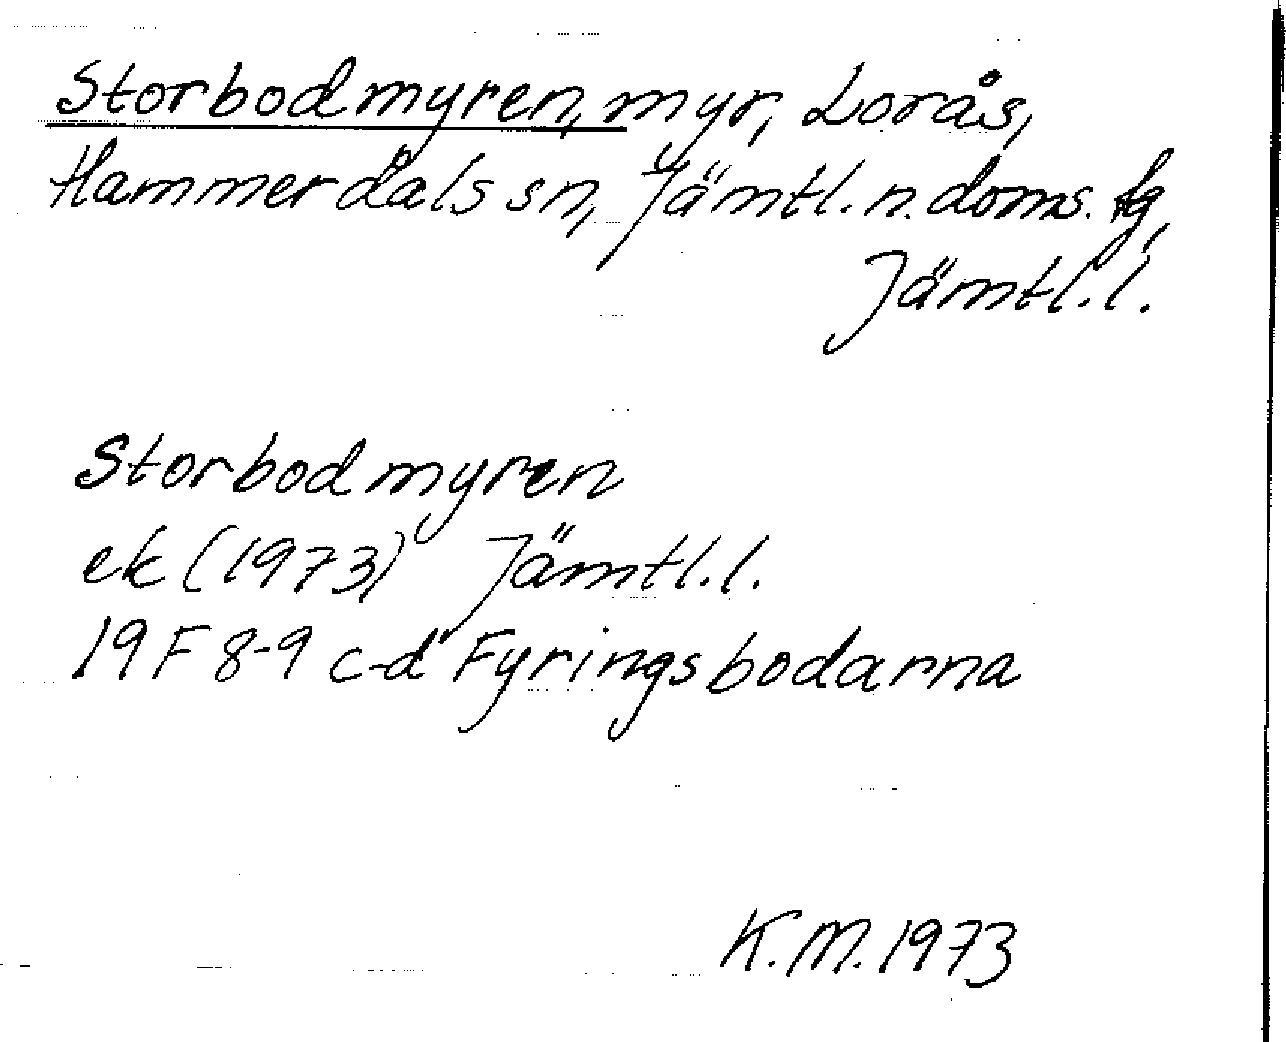 Storbodmyren, myr, Lorås,
Hammerdals sn, Jämtl. n. doms. fg,
Jämtl. l.
Storbodmyren
ek (1973) Jämtl. l.
19 F 8-9 c-d Fyringsbodarna
K. M. 1973